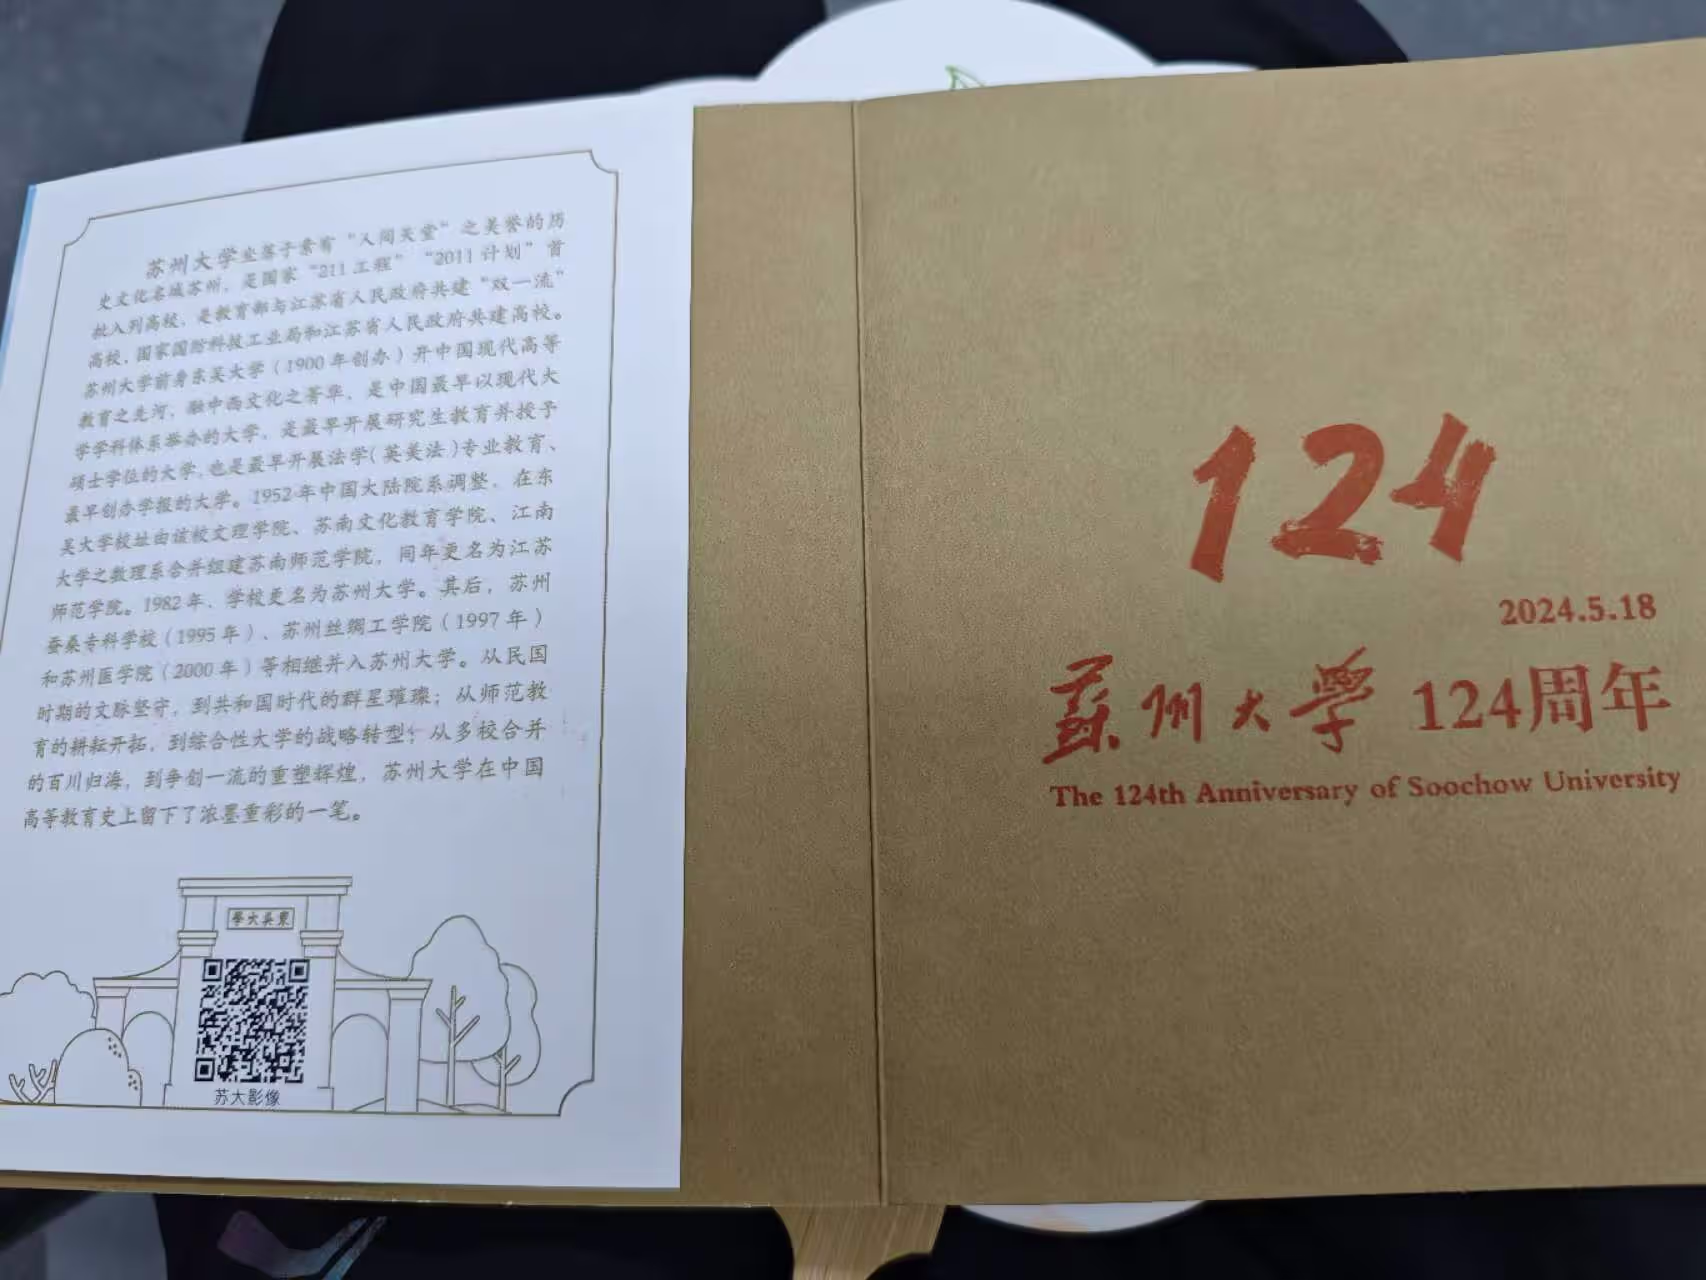 苏州大学坐落于素有“人间天堂”之美誉的历
史文化名城苏州，是国家“211工程”“2011计划”首
批入列高校，是教育部与江苏省人民政府共建“双一流”
高校，国家国防科技工业局和江苏省人民政府共建高校。
苏州大学前身东吴大学（1900年创办）开中国现代高等
教育之先河，融中西文化之菁华，是中国最早以现代大
学学科体系举办的大学，是最早开展研究生教育并授予
硕士学位的大学，也是最早开展法学（英美法）专业教育、
最早创办学报的大学。1952年中国大陆院系调整，在东
吴大学校址由该校文理学院、苏南文化教育学院、江南
大学之数理系合并组建苏南师范学院，同年更名为江苏
师范学院。1982年，学校更名为苏州大学。其后，苏州
蚕桑专科学校（1995年）、苏州丝绸工学院（1997年）
和苏州医学院（2000年）等相继并入苏州大学。从民国
时期的文脉坚守，到共和国时代的群星璀璨；从师范教
育的耕耘开拓，到综合性大学的战略转型；从多校合并
的百川归海，到争创一流的重塑辉煌，苏州大学在中国
高等教育史上留下了浓墨重彩的一笔。
學大吳東
苏大影像
124
2024.5.18
蘇州大學 124周年
The 124th Anniversary of Soochow University